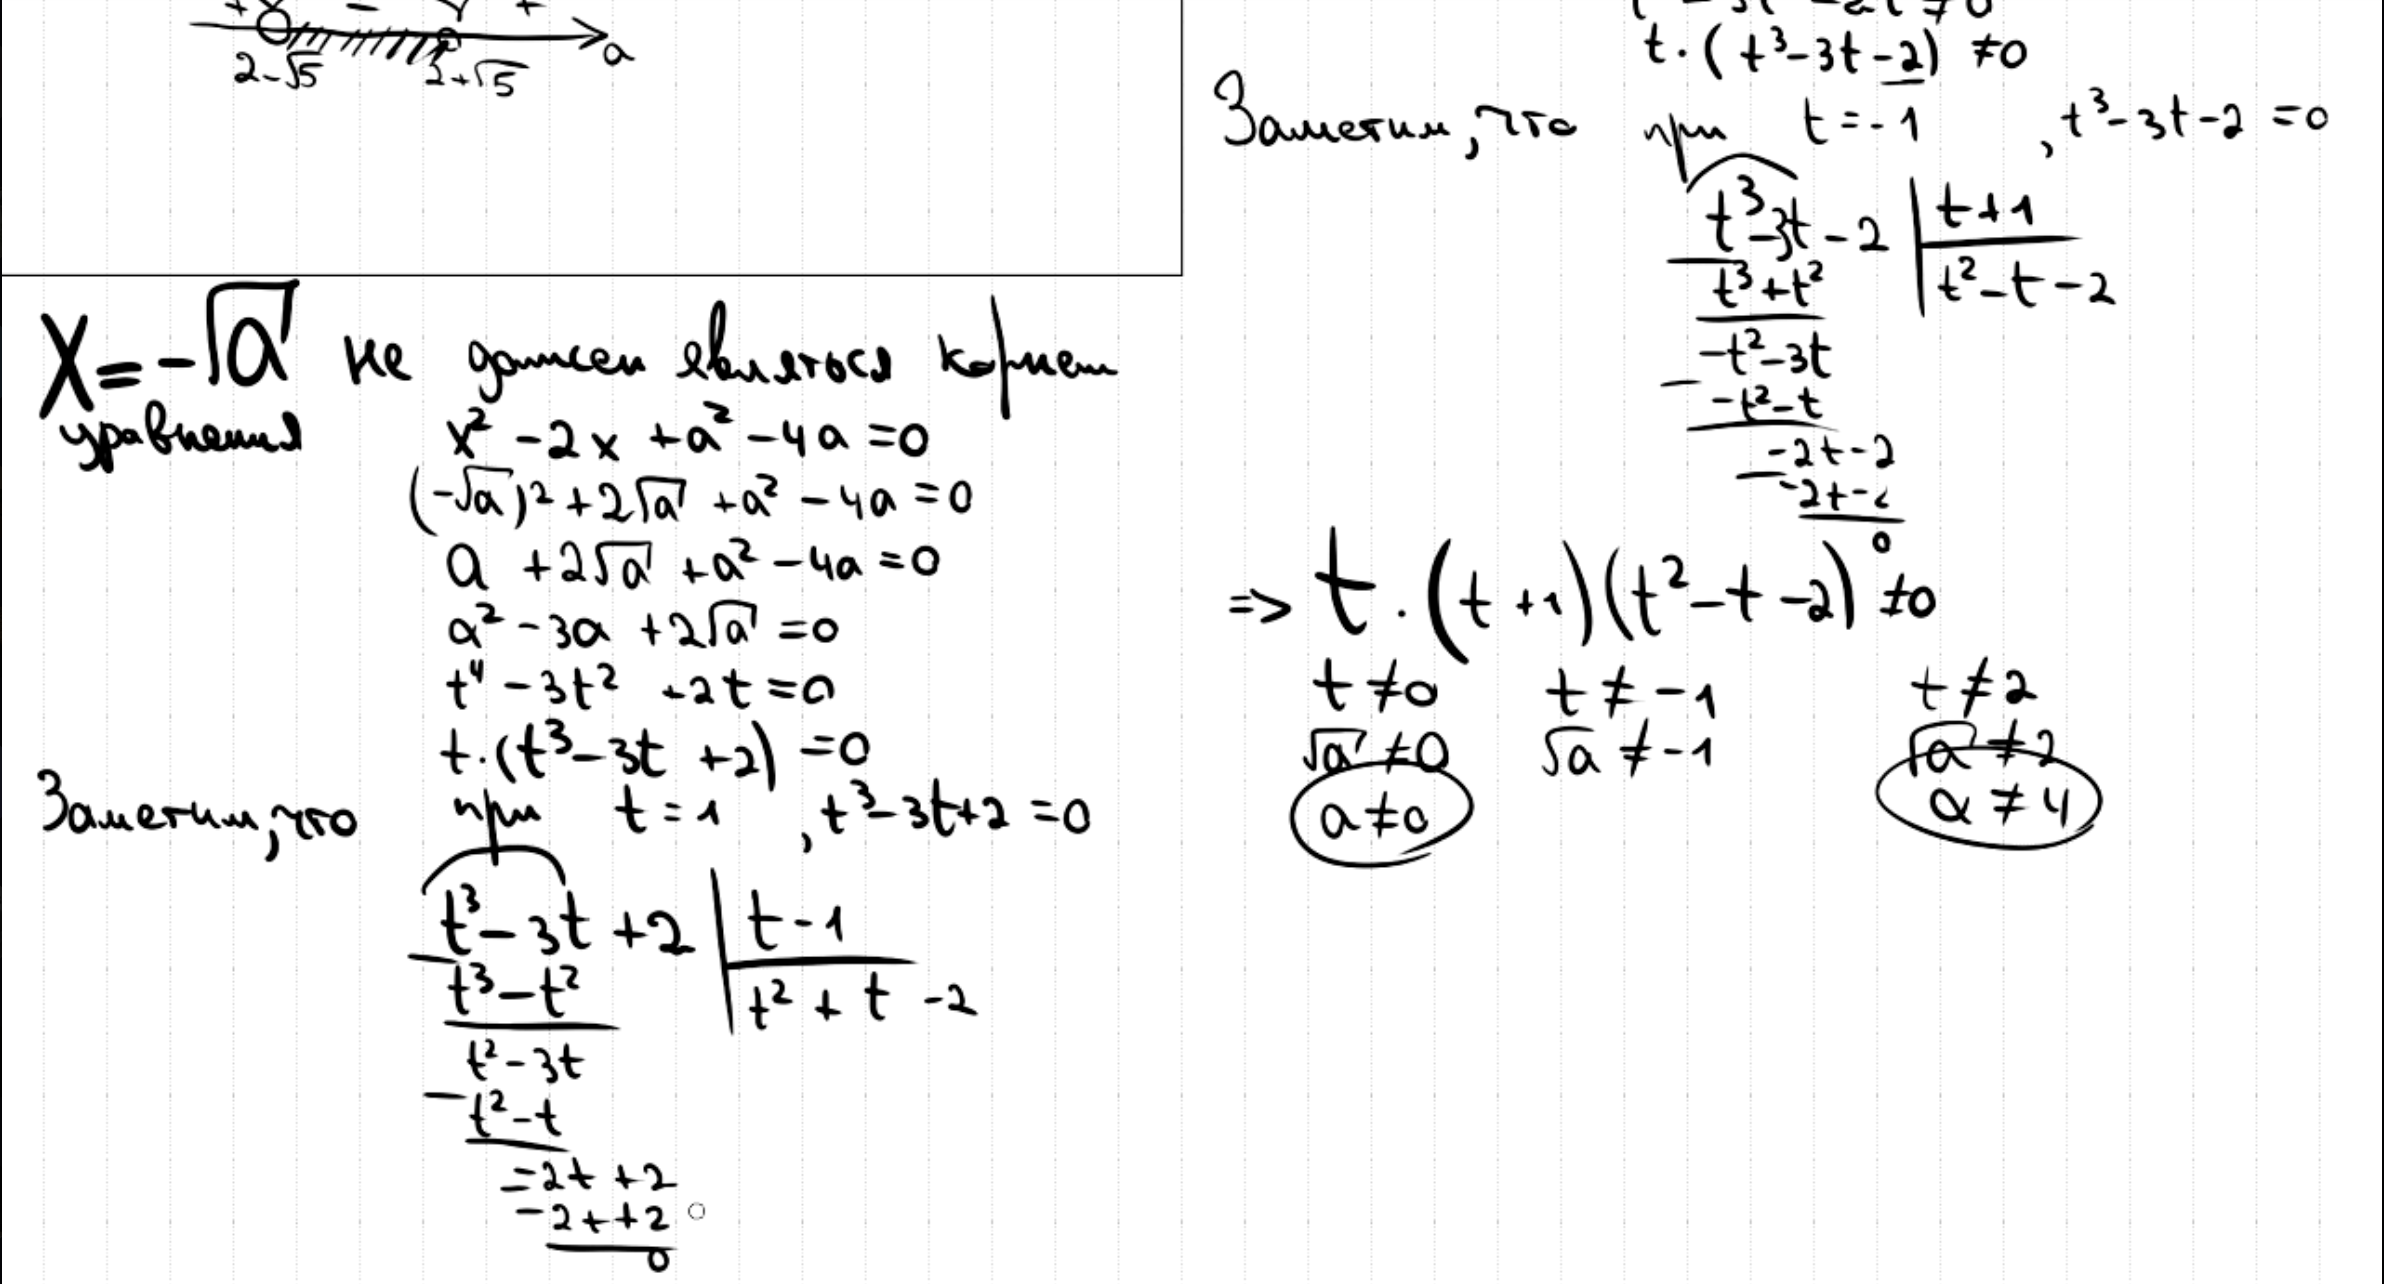 + − +
2-√5 2+√5 a
x=-√a не должен являться корнем
уравнения x²-2x+a²-4a=0
(-√a)²+2√a+a²-4a=0
a+2√a+a²-4a=0
a²-3a+2√a=0
t⁴-3t²+2t=0
t·(t³-3t+2)=0
Заметим, что при t=1, t³-3t+2=0
t³-3t+2 | t-1
t³-t² | t²+t-2
t²-3t
t²-t
-2t+2
-2t+2
0
t·(t³-3t-2)≠0
Заметим, что при t=-1, t³-3t-2=0
t³-3t-2 | t+1
t³+t² | t²-t-2
-t²-3t
-t²-t
-2t-2
-2t-2
0
=> t·(t+1)(t²-t-2)≠0
t≠0 t≠-1 t≠2
√a≠0 √a≠-1 √a≠2
a≠0 a≠4